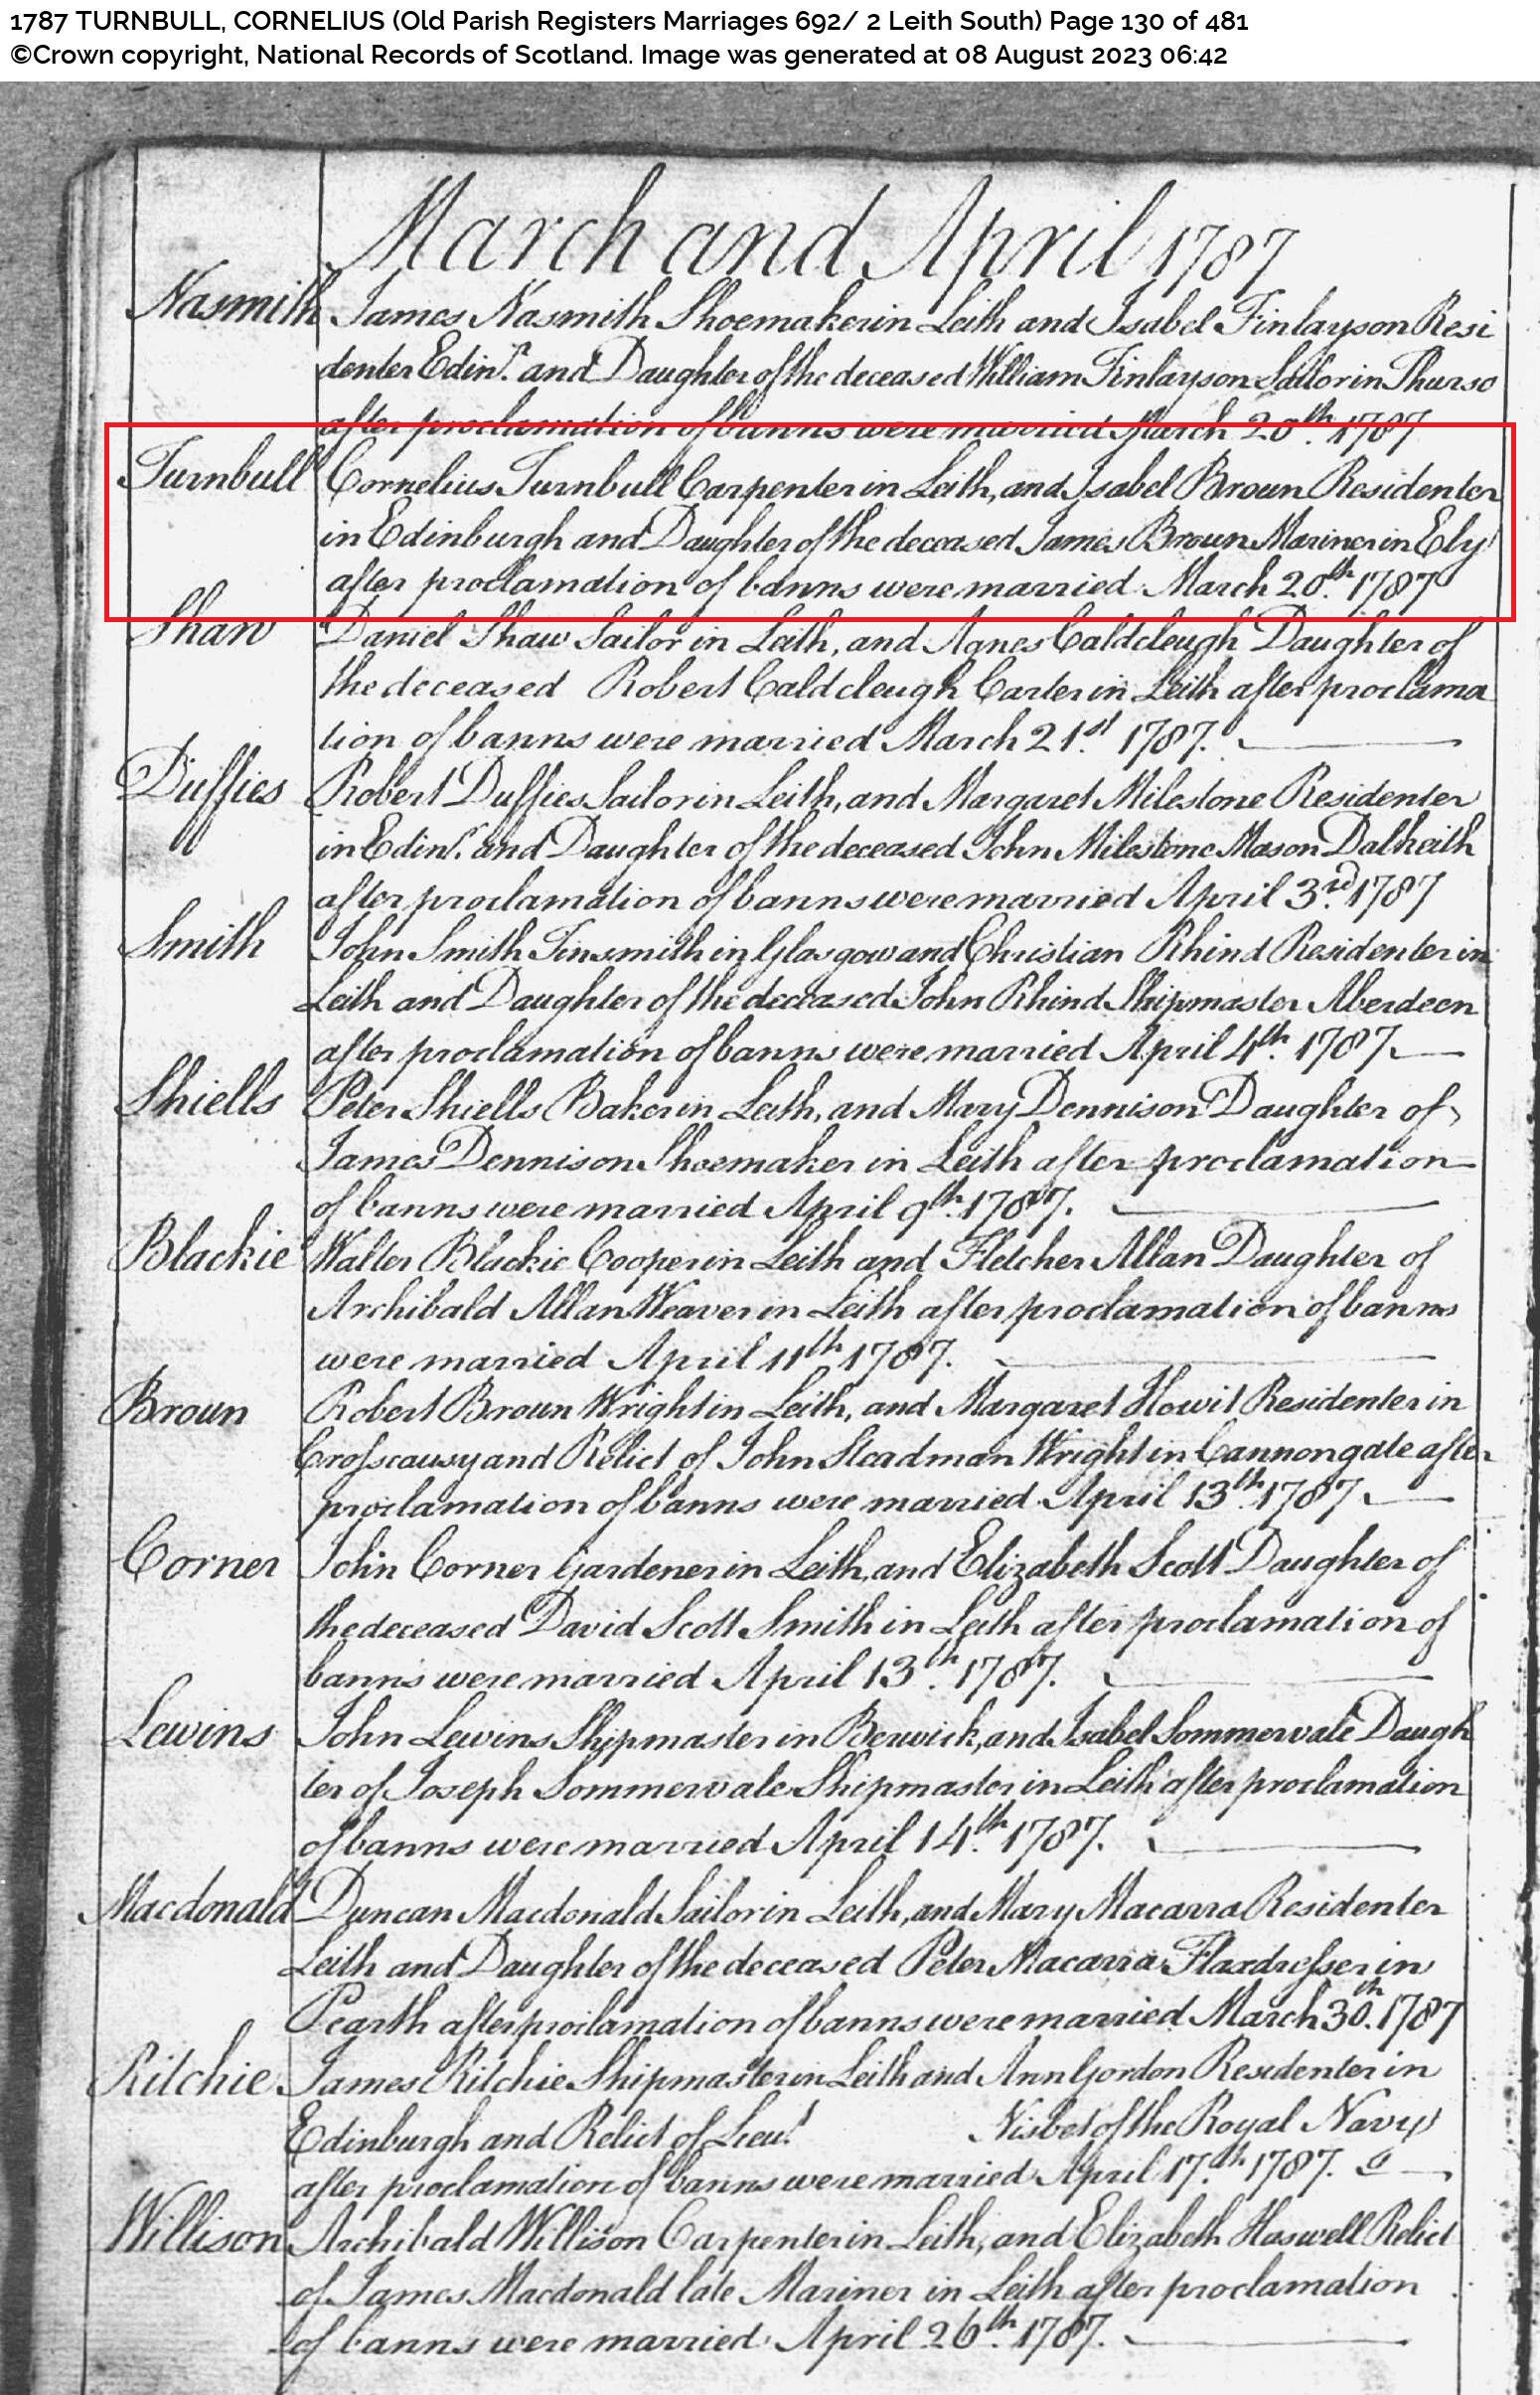 1787 TURNBULL, CORNELIUS (Old Parish Registers Marriages 692/ 2 Leith South) Page 130 of 481
©Crown copyright, National Records of Scotland. Image was generated at 08 August 2023 06:42
March and April 1787
Nasmith James Nasmith Shoemaker in Leith and Isabel Finlayson Resi
denter Edinr. and Daughter of the deceased William Finlayson Sailor in Thurso
after proclamation of banns were married March 20th. 1787
Turnbull Cornelius Turnbull Carpenter in Leith, and Isabel Broun Residenter
in Edinburgh and Daughter of the deceased James Broun Mariner in Ely
after proclamation of banns were married March 20th. 1787
Shaw Daniel Shaw Sailor in Leith, and Agnes Caldcleugh Daughter of
the deceased Robert Caldcleugh Carter in Leith after proclama
tion of banns were married March 21st. 1787.
Duffies Robert Duffies Sailor in Leith, and Margaret Milestone Residenter
in Edinr. and Daughter of the deceased John Milestone Mason Dalkeith
after proclamation of banns were married April 3rd. 1787
Smith John Smith Tinsmith in Glasgow and Christian Rhind Residenter in
Leith and Daughter of the deceased John Rhind Shipmaster Aberdeen
after proclamation of banns were married April 4th. 1787.
Shiells Peter Shiells Baker in Leith, and Mary Dennison Daughter of
James Dennison Shoemaker in Leith after proclamation
of banns were married April 9th. 1787.
Blackie Walter Blackie Cooper in Leith and Fletcher Allan Daughter of
Archibald Allan Weaver in Leith after proclamation of banns
were married April 11th 1787.
Broun Robert Broun Wright in Leith, and Margaret Howit Residenter in
Crosscausy and Relict of John Steadman Wright in Cannongate after
proclamation of banns were married April 13th. 1787.
Corner John Corner Gardener in Leith, and Elizabeth Scott Daughter of
the deceased David Scott Smith in Leith after proclamation of
banns were married April 13th. 1787.
Lewins John Lewins Shipmaster in Berwick, and Isabel Sommervale Daugh
ter of Joseph Sommervale Shipmaster in Leith after proclamation
of banns were married April 14th. 1787.
Macdonald Duncan Macdonald Sailor in Leith, and Mary Macarra Residenter
Leith and Daughter of the deceased Peter Macarra Flaxdresser in
Pearth after proclamation of banns were married March 30th. 1787
Ritchie James Ritchie Shipmaster in Leith and Ann Gordon Residenter in
Edinburgh and Relict of Lieut. Nisbet of the Royal Navy
after proclamation of banns were married April 17th. 1787.
Willison Archibald Willison Carpenter in Leith, and Elizabeth Haswell Relict
of James Macdonald late Mariner in Leith after proclamation
of banns were married April 26th. 1787.